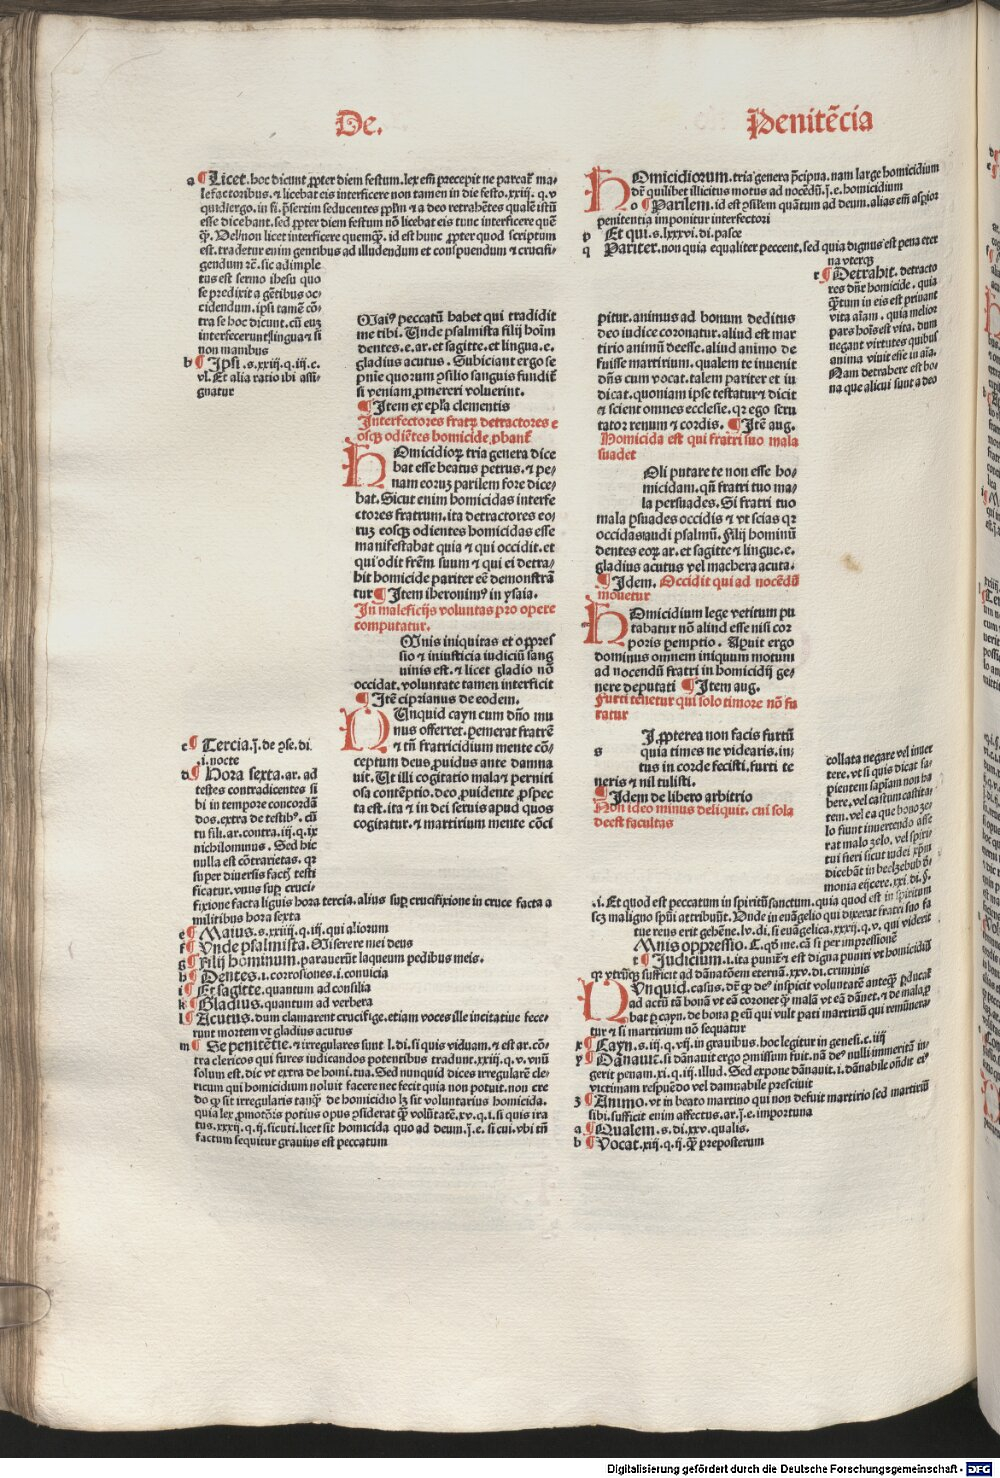 De.
Penitẽcia
a ¶ Licet. hoc dicunt ꝓpter diem festum. lex em̃ precepit ne parcat᷑ ma-
lefactoribus. ⁊ licebat eis interficere non tamen in die festo. xxiij. q. v
quid ergo. in fi. p̃sertim seducentes ppl̃m ⁊ a deo retrahẽtes qualẽ istũ
esse dicebant. sed ꝓpter diem festum nõ licebat eis tunc interficere quẽ
non licet interficere quemq̃. id est hunc ꝓpter quod scriptum
est. tradetur enim gentibus ad illudendum et conspuendum ⁊ crucifi-
gendum rẽ. sic adimple
tus est sermo ihesu quo
se predixit a gẽtibus oc-
cidendum. ipsi tamẽ cõ-
tra se hoc dicunt. cũ euʒ
interfecerunt lingua ⁊ si
non manibus
b ¶ Ipsi. s. xxiij. q. iij. c.
vl. Et alia ratio ibi assi-
gnatur
Maiꝰ peccatũ habet qui tradidit
me tibi. Unde psalmista filij hoĩm
dentes. e. ar. et sagitte. et lingua. e.
gladius acutus. Subiciant ergo se
pñie quorum ꝯsilio sanguis fundit᷑
si veniam ꝓmereri voluerint.
¶ Item ex ep̃la clementis
Interfectores fratrꝝ detractores e
osqʒ odiẽtes homicide ꝓbant᷑
HOmicidiorꝝ tria genera dice
bat esse beatus petrus. ⁊ pe-
nam eoruʒ parilem fore dice-
bat. Sicut enim homicidas interfe
ctores fratrum. ita detractores eo-
ruʒ eosqʒ odientes homicidas esse
manifestabat quia ⁊ qui occidit. et
qui odit frẽm suum ⁊ qui ei detra-
hit homicide pariter eẽ demonstrã
tur ¶ Item iheronimꝰ in ysaia.
In maleficijs voluntas pro opere
computatur.
OMnis iniquitas et oppres
sio ⁊ iniusticia iudiciũ sang
uinis est. ⁊ licet gladio nõ
occidat. voluntate tamen interficit
¶ Itẽ ciprianus de eodem.
NUnquid cayn cum dño mu
nus offerret. ꝑemerat fratrẽ
⁊ tñ fratricidium mente cõ-
ceptum deus ꝓuidus ante damna
uit. Ut illi cogitatio mala ⁊ perniti
osa contẽptio. deo ꝓuidente ꝓspec
ta est. ita ⁊ in dei seruis apud quos
cogitatur. ⁊ martirium mente cõci
c ¶ Tercia. j̃. de ꝯse. di.
.i. nocte
d ¶ Hora sexta. ar. ad
testes contradicentes si
bi in tempore concordã
dos. extra de testibꝰ. cũ
tu fili. ar. contra. iij. q. ix
nichilominus. Sed hic
nulla est cõtrarietas. qꝛ
super diuersis factꝭ testi
ficatur. vnus suꝑ cruci-
fixione facta liguis hora tercia. alius suꝑ crucifixione in cruce facta a
militibus hora sexta
e ¶ Maius. s. xxiiij. q. iij. qui aliorum
f ¶ Unde psalmista. Miserere mei deus
g ¶ Filij hominum. parauerũt laqueum pedibus meis.
h ¶ Dentes. i. corrosiones. i. conuicia
i ¶ Et sagitte. quantum ad consilia
k ¶ Gladius. quantum ad verbera
l ¶ Acutus. dum clamarent crucifige. etiam voces ille incitatiue fece-
runt mortem vt gladius acutus
m ¶ Se penitẽtie. ⁊ irregulares sunt l. di. si quis viduam. ⁊ est ar. cõ-
tra clericos qui fures iudicandos potentibus tradunt. xxiij. q. v. vnũ
solum est. dic vt extra de homi. tua. Sed nunquid dices irregularẽ cle-
ricum qui homicidium noluit facere nec fecit quia non potuit. non cre
do qꝙ sit irregularis tanqʒ de homicidio lʒ sit voluntarius homicida.
quia lex ꝓmotõis potius opus ꝯsiderat qʒ volũtatẽ. xv. q. i. si quis ira
tus. xxxiij. q. ij. sicuti. licet sit homicida quo ad deum. j̃. e. si cui. vbi tñ
factum sequitur grauius est peccatum
HOmicidiorum. tria genera p̃cipua. nam large homicidium
dẽ quilibet illicitus motus ad nocẽdũ. j̃. e. homicidium
o ¶ Parilem. id est ꝑsil̃em quãtum ad deum. alias em̃ asp̃ior
penitentia imponitur interfectori
p Et qui. s. lxxxvi. di. pasce
q Pariter. non quia equaliter peccent. sed quia dignus est pena eter
na vterqʒ
r ¶ Detrahit. detracto
res dñr homicide. quia
qʒtum in eis est priuant
vita aĩam. quia melior
pars hoĩs est vita. dum
negant virtutes quibus
anima viuit esse in aĩa.
Nam detrahere est bo-
na que alicui sunt a deo
pitur. animus ad bonum deditus
deo iudice coronatur. aliud est mar
tirio animũ deesse. aliud animo de
fuisse martirium. qualem te inuenit
dñs cum vocat. talem pariter et iu
dicat. quoniam ipse testatur ⁊ dicit
⁊ scient omnes ecclesie. qꝛ ego scru
tator renum ⁊ cordis. ¶ Itẽ aug.
Homicida est qui fratri suo mala
suadet
NOli putare te non esse ho-
micidam. qñ fratri tuo ma-
la persuades. Si fratri tuo
mala ꝑsuades occidis ⁊ vt scias qꝛ
occidas audi psalmũ. Filij hominũ
dentes eorꝝ ar. et sagitte ⁊ lingue. e.
gladius acutus vel machera acuta.
¶ Idem. Occidit qui ad nocẽdũ
mouetur
HOmicidium lege vetitum pu
tabatur nõ aliud esse nisi cor
poris ꝑemptio. Apuit ergo
dominus omnem iniquum motum
ad nocendũ fratri in homicidij ge-
nere deputari ¶ Item aug.
Furti tenetur qui solo timore nõ fu
ratur
SI ꝓpterea non facis furtũ
s quia times ne videaris. in-
tus in corde fecisti. furti te
neris ⁊ nil tulisti.
¶ Idem de libero arbitrio
Non ideo minus deliquit. cui sola
deest facultas
collata negare vel inuer
tere. vt si quis dicat sa-
pientem sapiam non ha
bere. vel castum castita-
tem. vel ea que bono ze-
lo fiunt inuertendo asse
rat malo zelo. vel spiri-
tui fieri sicut iudei xp̃m
dicebãt in beelzebub d-
monia eijcere. xxi. di. §.
.i. Et quod est peccatum in spiritũ sanctum. quia quod est in spiritum
scʒ maligno spũi attribuũt. Unde in euãgelio qui dixerat fratri suo fa
tue reus erit gehẽne. lv. di. si euãgelica. xxxij. q. v. qui viderit
Omnis oppressio. C. qꝙ me. cã si per impressionẽ
t ¶ Judicium. i. ita punit᷑ ⁊ est digna puniri vt homicidiũ
qꝛ vtrũqʒ sufficit ad dãnatõem eternã. xxv. di. criminis
NUnquid. casus. dẽ qꝙ deꝰ inspicit voluntatẽ anteqʒ ꝓducat᷑
ad actũ tã bonã vt eã coronet qʒ malã vt eã dãnet. ⁊ de mala ꝓ
bat ꝑ cayn. de bona ꝑ eũ qui vult pati martiriũ qui remunera-
tur ⁊ si martirium nõ sequatur
x ¶ Cayn. s. iij. q. vij. in grauibus. hoc legitur in genesi. c. iiij
y ¶ Dãnauit. si dãnauit ergo ꝓmissum fuit. nã deꝰ nulli immeritã in-
gerit penam. xi. q. iij. illud. Sed expone dãnauit. i. dãnabile oñdit eiꝰ
victimam respuẽdo vel damnabile presciuit
z ¶ Animo. vt in beato martino qui non defuit martirio sed martiriũ
sibi. sufficit enim affectus. ar. j̃. e. importuna
a ¶ Qualem. s. di. xxv. qualis.
b ¶ Uocat. xiij. q. ij. qʒ preposterum
Digitalisierung gefördert durch die Deutsche Forschungsgemeinschaft - DFG